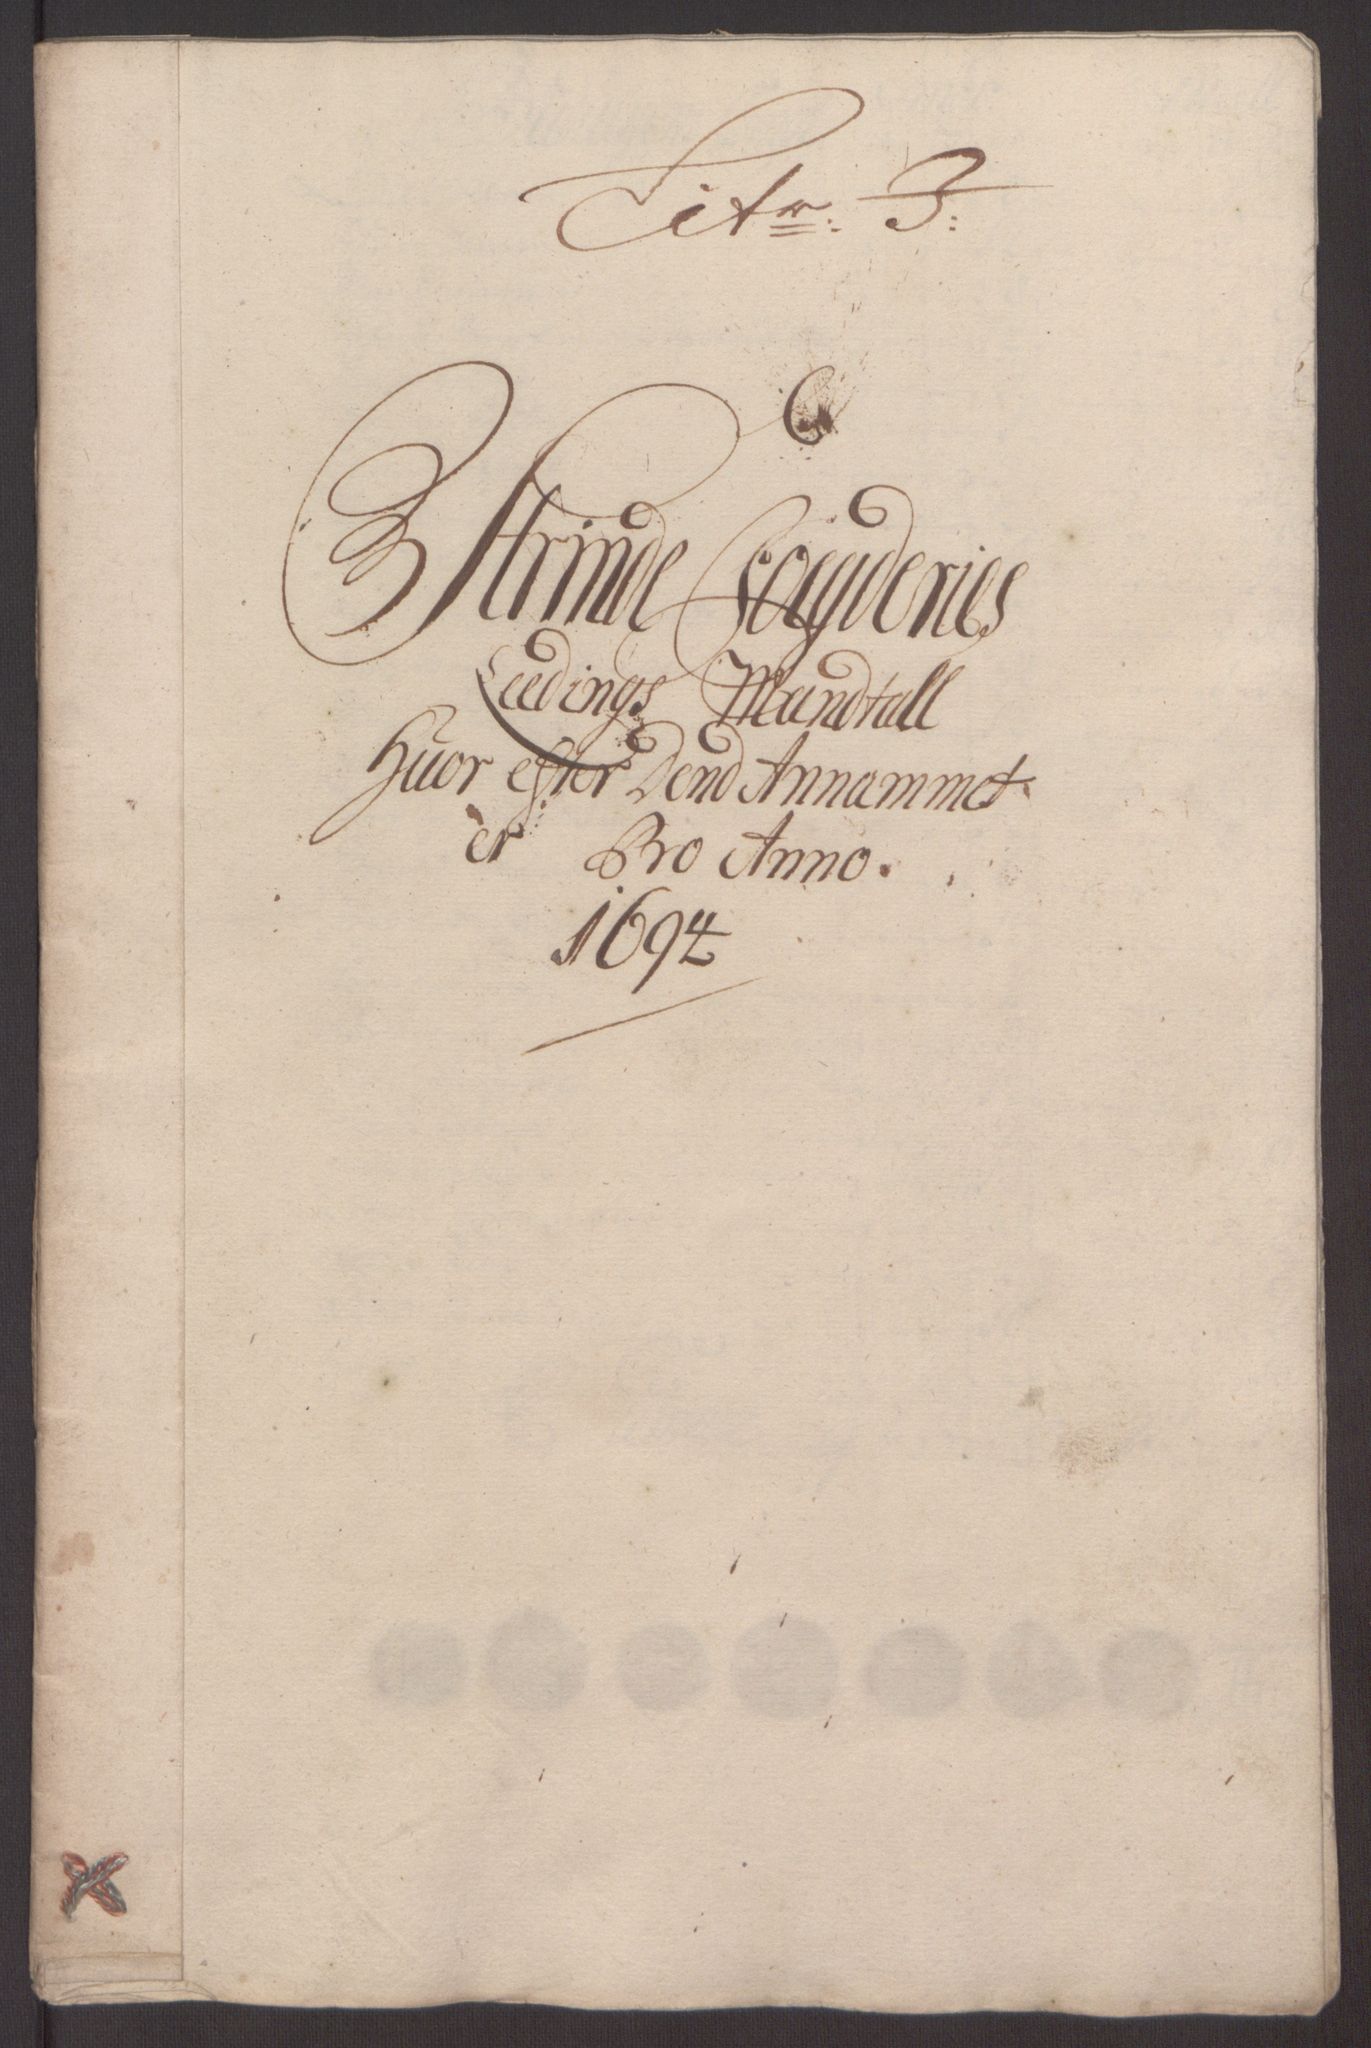 Litr: 3:
Strinde Fougderies
Leedings Mandtall
Huor efter Dend Annammet
er Pro Anno.
1694